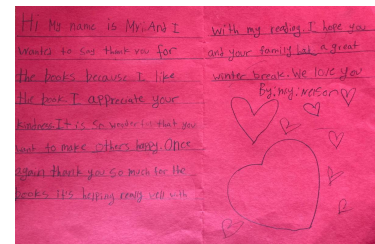 Hi My name is My, And I
wanted to say thank you for
the books because I like
the book I appreciate your
kindness. It is so wonder that you
want to make others happy. Once
again thank you so much for the
books it's helping really well with
with my reading. I hope you
and your family have a great
winter break. We love you
By: my.